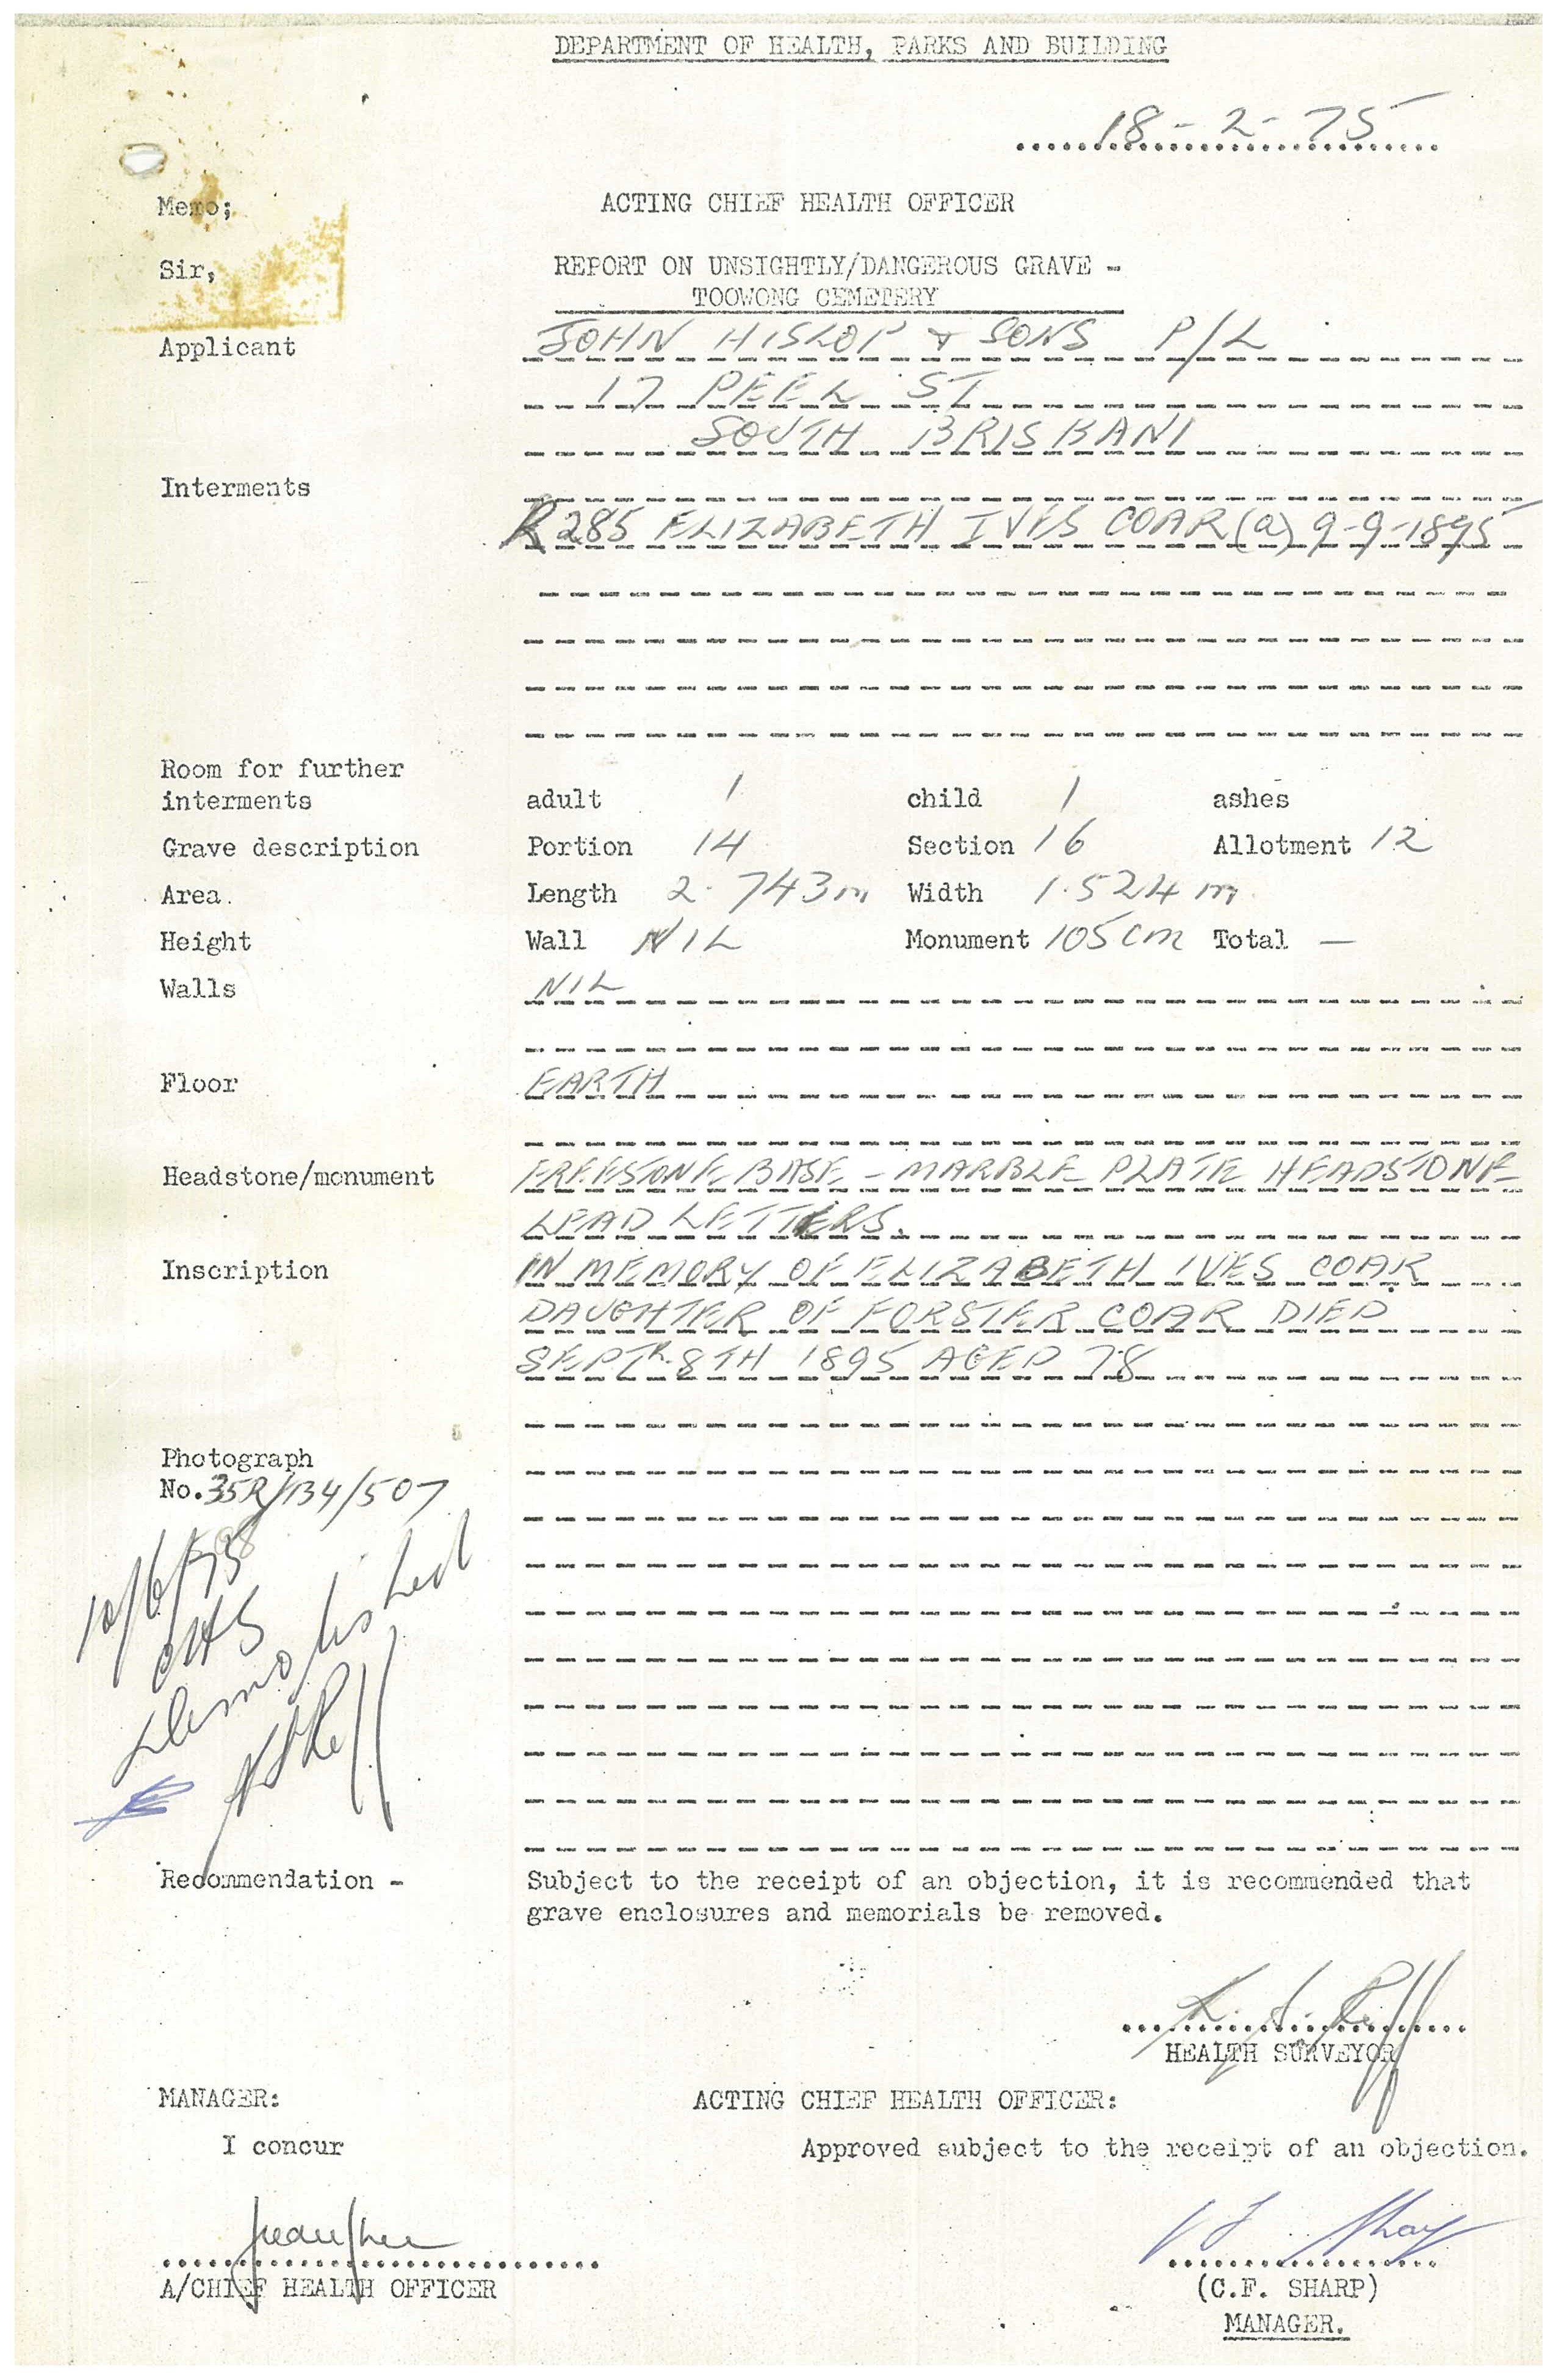 DEPARTMENT OF HEALTH, PARKS AND BUILDING
18-2-75
Memo; ACTING CHIEF HEALTH OFFICER
Sir, REPORT ON UNSIGHTLY/DANGEROUS GRAVE -
TOOWONG CEMETERY
Applicant JOHN HISLOP & SONS P/L
17 PEEL ST
SOUTH BRISBANE
Interments
R285 ELIZABETH IVES COAR (a) 9-9-1895
Room for further
interments adult 1 child 1 ashes
Grave description Portion 14 Section 16 Allotment 12
Area. Length 2.743m Width 1.524m
Height Wall NIL Monument 105cm Total —
Walls NIL
Floor EARTH
Headstone/monument FREESTONE BASE - MARBLE PLATE HEADSTONE
LEAD LETTERS.
Inscription IN MEMORY OF ELIZABETH IVES COAR
DAUGHTER OF FORSTER COAR DIED
SEPTR 8TH 1895 AGED 78
Photograph
No. 35R/134/507
10/6/75
CHS
Demolished
Recommendation - Subject to the receipt of an objection, it is recommended that
grave enclosures and memorials be removed.
HEALTH SURVEYOR
MANAGER: ACTING CHIEF HEALTH OFFICER:
I concur Approved subject to the receipt of an objection.
A/CHIEF HEALTH OFFICER (C.F. SHARP)
MANAGER.